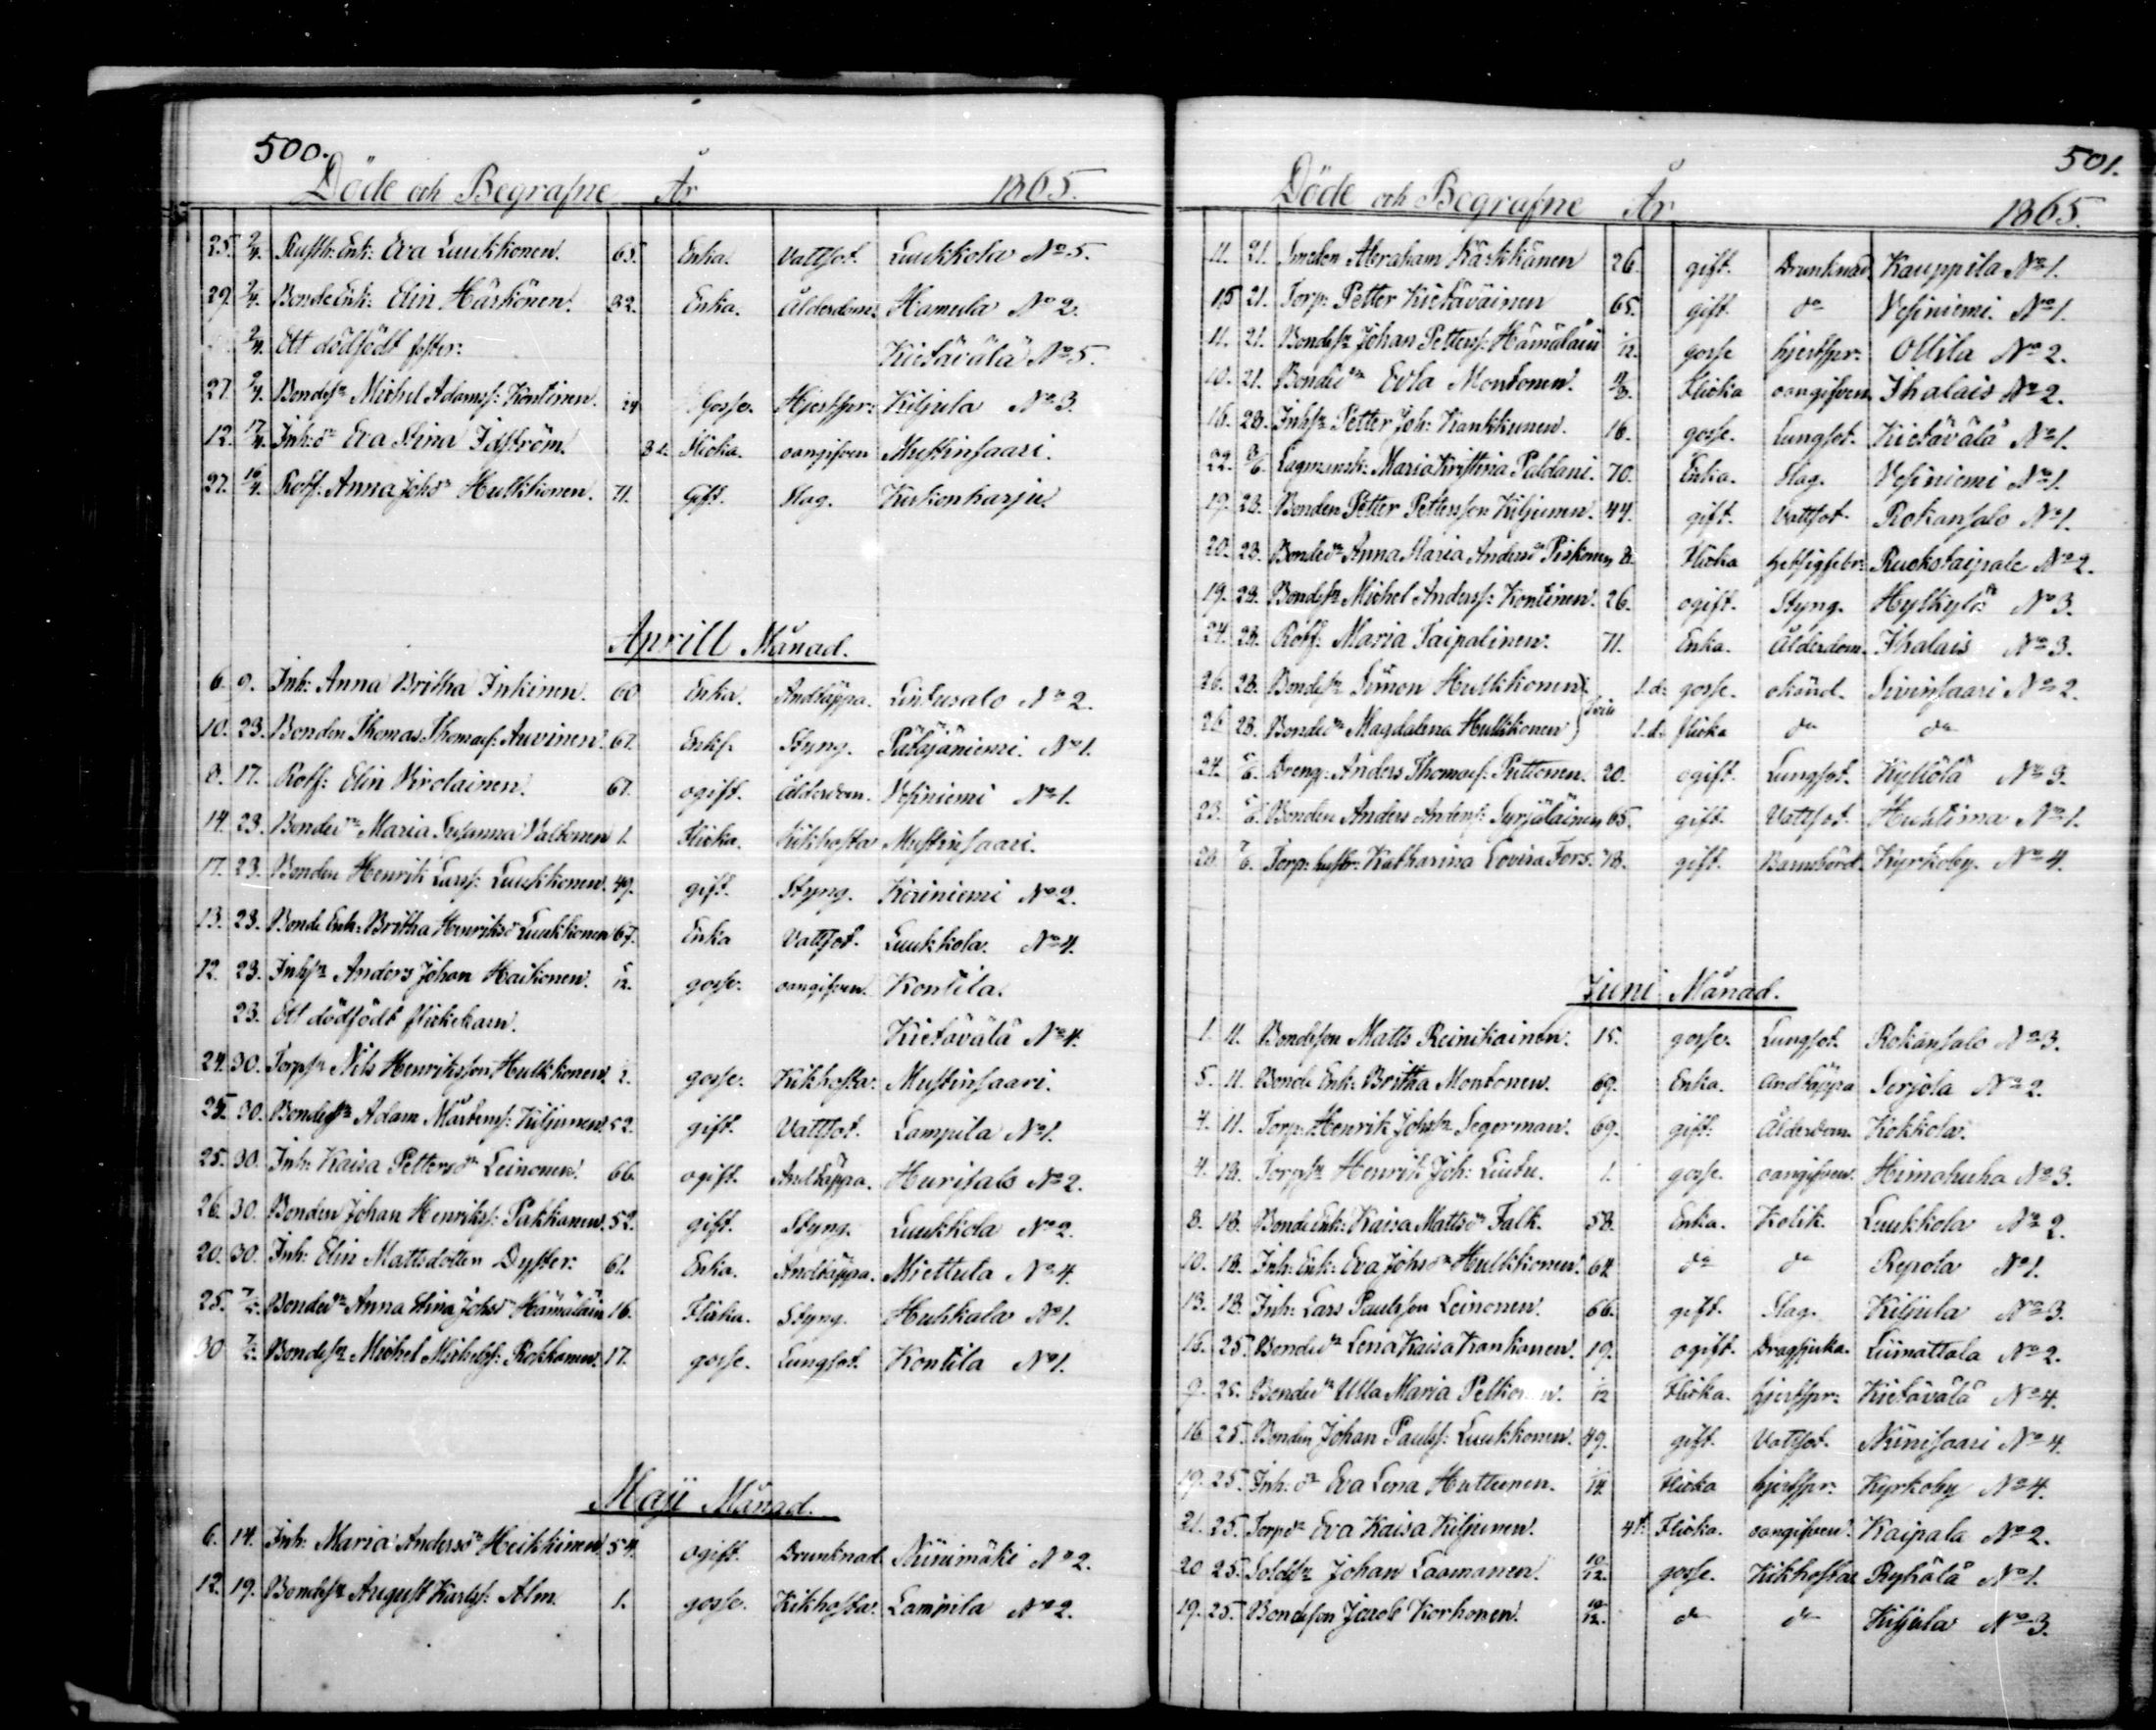 500.
Döde och Begrafne År 1865.
25. 2/4. Rusth: Enk: Eva Luukkonen. 65. Enka. Vattsot. Luukkola No 5.
29. 2/4. Bonde Enk: Elin Härkönen. 82. Enka. Ålderdom. Hamula No 2.
2/4. Ett dödfödt foster: Kietävälä No 5.
27. 2/4. Bondesn Michel Adamss: Kontinen. Gosse. Hjertspr: Kiljula No 3.
12. 17/4. Inh: dr Eva Stina Idström. Flicka. oangifven Mustinsaari.
27. 16/4. Rotf. Anna Johsdr Hulkkonen. 71. Gift. Slag. Kurkonharju.
Aprill Månad.
6. 9. Inh: Anna Britha Inkinen. 60 Enka. Andtäppa. Lintusalo No 2.
10. 23. Bonden Thomas Thomass: Auvinen. 67. Enkl. Styng. Pätäjäniemi No 1.
8. 17. Rotf: Elin Virolainen. 67. ogift. Ålderdom. Vesiniemi No 1.
14. 23. Bondedr Maria Susanna Valtonen 1. Flicka. Kikhosta Mustinsaari.
17. 23. Bonden Henrik Larss: Luukkonen. 49. gift. Styng. Käiniemi No 2.
13. 23. Bonde Enk: Britha Henriksdr Luukkonen 67. Enka Vattsot. Luukkola. No 4.
12. 23. Inhsn Anders Johan Haikonen. 5/12. gosse. oangifven. Kontila.
23. Ett dödfödt flickebarn. Kietävälä No 4.
24. 30. Torpsn Nils Henriksson Hulkkonen. 1. gosse. Kikhosta. Mustinsaari.
25. 30. Bondesn Adam Mårtenss: Kiljunen. 52. gift. Vattsot. Lampila No 1.
25. 30. Inh: Kaisa Pettersdr Leinonen. 66. ogift. Andtäppa. Hurisalo No 2.
26. 30. Bonden Johan Henrikss: Pakkanen. 52. gift. Styng. Luukkola No 2.
20. 30. Inh: Elin Mattsdotter Dyster: 61. Enka. Andtäppa. Miettula No 4.
25. 7/5. Bondedr Anna Stina Johsdr Hämäläin 16. Flicka. Styng. Huhkala No 1.
30 7/5. Bondesn Michel Michelss: Rokkanen. 17. gosse. Lungsot. Kontila No 1.
Maji Månad.
6. 14. Inh: Maria Andersdr Heikkinen. 54. ogift. Drunknad. Niinimäki No 2.
12. 19. Bondesn August Karlss: Alm. 1. gosse. Kikhosta. Lampila No 2.
501.
Döde och Begrafne År 1865.
11. 21. Smeden Abraham Kärkkänen 26. gift. Drunknad. Kauppila No 1.
15 21. Torp: Petter Kietäväinen 65. gift. do Vesiniemi. No 1.
11. 21. Bondesn Johan Petterss: Hämäläin gosse hjertspr: Ollila No 2.
10. 21. Bondedr Evla Montonen. Flicka oangifven. Ihalais No 2.
16. 28. Inhsn Petter Joh: Kankkunen. 16. gosse. Lungsot. Kietävälä No 1.
22. Lagmansk: Maria Kristina Paldani. 70. Enka. Slag. Vesiniemi No 1.
19. 28. Bonden Petter Pettersson Kiljunen. 44. gift. Vattsot. Rokansalo No 1.
20. 28. Bondedr Anna Maria Andersdr Piskonen 8. Flicka hetsigfebr: Ruokotaipale No 2.
19. 28. Bondesn Michel Anderss: Kontinen. 26. ogift. Styng. No 3.
24. 28. Rotf: Maria Taipalinen. 71. Enka. Ålderdom. Ihalais No 3.
26. 28. Bondesn Simon Hulkkonen 1.d: gosse. okänd. Sivinsaari No 2.
26 28. Bondedr Magdalena Hulkkonen 1.d: flicka do do
24. 5/6. Dreng: Anders Thomass: Puttonen. 20. ogift. Lungsot. Kyllölä No 3.
23. 5/6. Bonden Anders Anderss: Syrjäläinen 65. gift. Vattsot. Huhtima No 1.
28. 5/6. Torp: hustr: Katharina Lovisa Fors. gift. Barnsbörd. Kyrkoby. No 4.
Juni Månad.
1. 11. Bondeson Matts Reinikainen. 15. gosse. Lungsot. Rokansalo No 3.
5. 11. Bonde Enk: Britha Montonen. 69. Enka. Andtäppa Terjola No 2.
4. 11. Torp: Henrik Johsn Segerman. 69. gift. Ålderdom. Kokkola.
4. 18. Torpsn Henrik Joh: Liutu. 1. gosse. oangifven. Himahuha No 3.
8. 18. Bonde Enk: Kaisa Mattsdr Falk. 58. Enka. Kolik. Luukkola No 2.
10. 18. Inh: Enk: Eva Johsdr Hulkkonen. 64. do do Repola No 1.
13. 18. Inh: Lars Paulsson Leinonen. 66. gift. Slag. Kiljula No 3.
16. 25. Bondedr Lena Kaisa Kankanen. 19. ogift. Dragsjuka. Liimattala No 2.
9. 25. Bondedr Ulla Maria 1/12 Flicka. hjertspr: Kietävälä No 4.
16 25. Bonden Johan Paulss: Luukkonen. 49. gift. Vattsot. Niinisaari No 4.
19. 25. Inh: dr Eva Lena Huttunen. Flicka hjertspr: Kyrkoby No 4.
21. 25. Torpdr Eva Kaisa Kiljunen. Flicka. oangifven. Kaipala No 2.
20 25. Soldsn Johan Laamanen. 10/12. gosse. Kikhosta Rykälä No 1.
19. 25. Bondeson Jacob Korhonen. 10/12. do do Kiljula No 3.